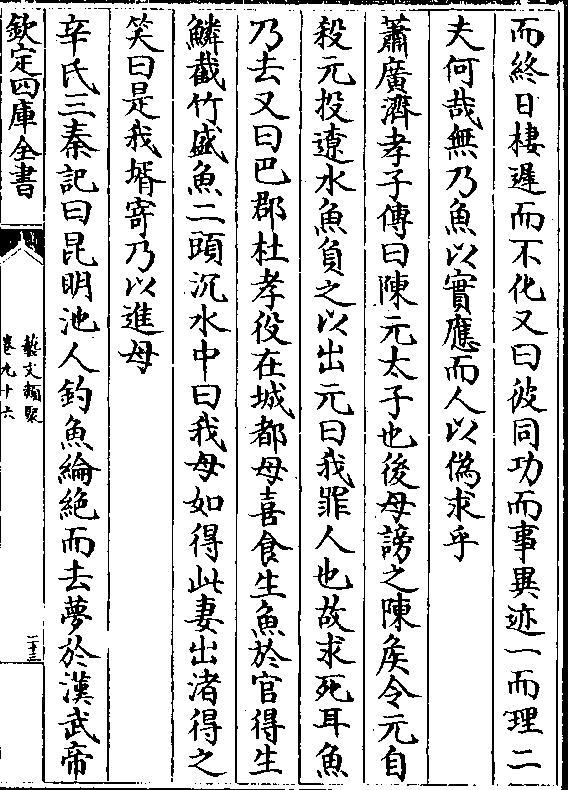 而終日棲遲而不化又曰彼同功而事異迹一而理二
夫何哉無乃魚以實應而人以偽求乎
蕭廣濟孝子傳曰陳元太子也後母謗之陳侯令元自
殺元投遼水魚負之以出元曰我罪人也故求死耳魚
乃去又曰巴郡杜孝役在城都母喜食生魚於官得生
鱗截竹盛魚二頭沉水中曰我母如得此妻出渚得之
笑曰是我壻寄乃以進母
辛氏三秦記曰昆明池人釣魚綸絶而去夢於漢武帝
欽定四庫全書
藝文類聚
卷九十六
二十三